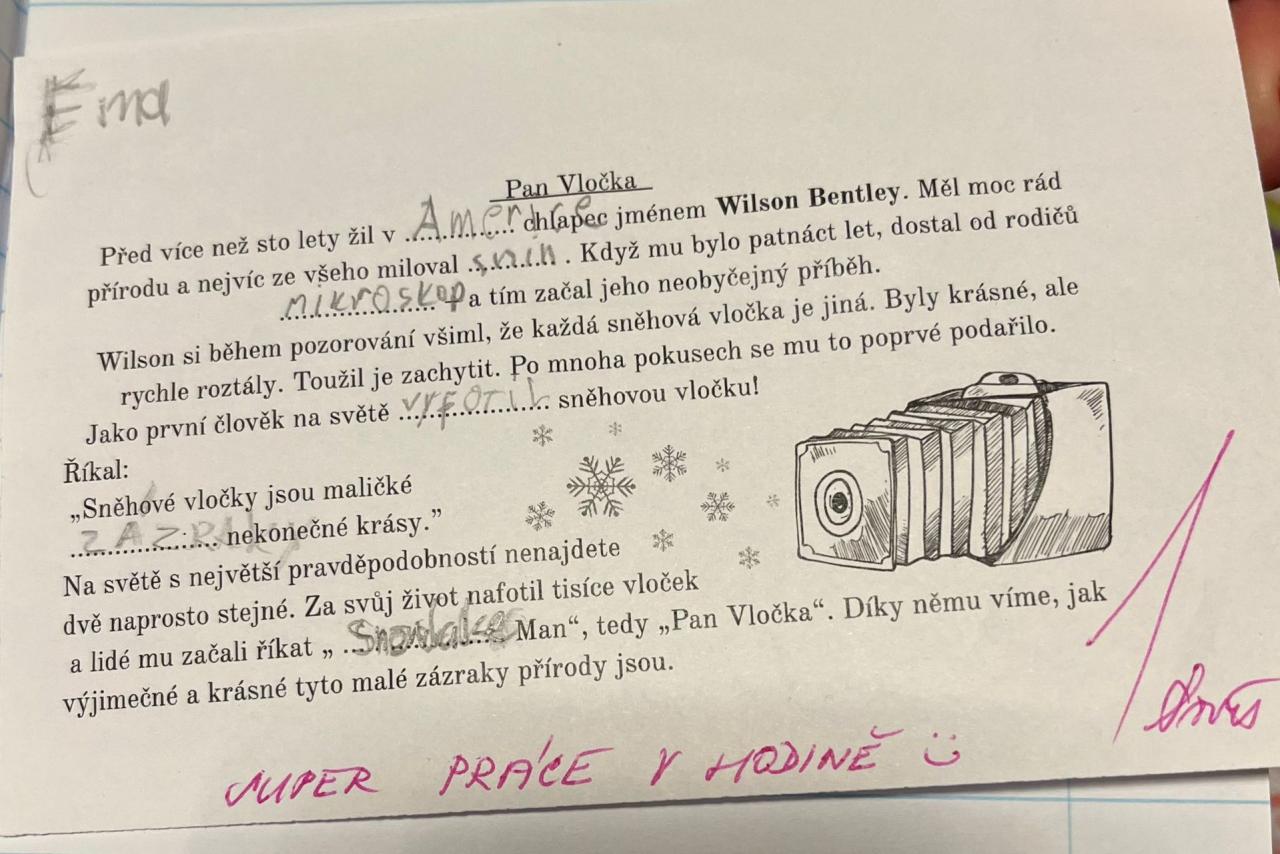 Ema
Pan Vločka
Před více než sto lety žil v Americe chlapec jménem Wilson Bentley. Měl moc rád
přírodu a nejvíc ze všeho miloval snih. Když mu bylo patnáct let, dostal od rodičů
mikroskop a tím začal jeho neobyčejný příběh.
Wilson si během pozorování všiml, že každá sněhová vločka je jiná. Byly krásné, ale
rychle roztály. Toužil je zachytit. Po mnoha pokusech se mu to poprvé podařilo.
Jako první člověk na světě vyfotil sněhovou vločku!
Říkal:
„Sněhové vločky jsou maličké
ZÁZRAKY nekonečné krásy.”
Na světě s největší pravděpodobností nenajdete
dvě naprosto stejné. Za svůj život nafotil tisíce vloček
a lidé mu začali říkat „ Man“, tedy „Pan Vločka“. Díky němu víme, jak
výjimečné a krásné tyto malé zázraky přírody jsou.
1
SUPER PRÁCE V HODINĚ :)